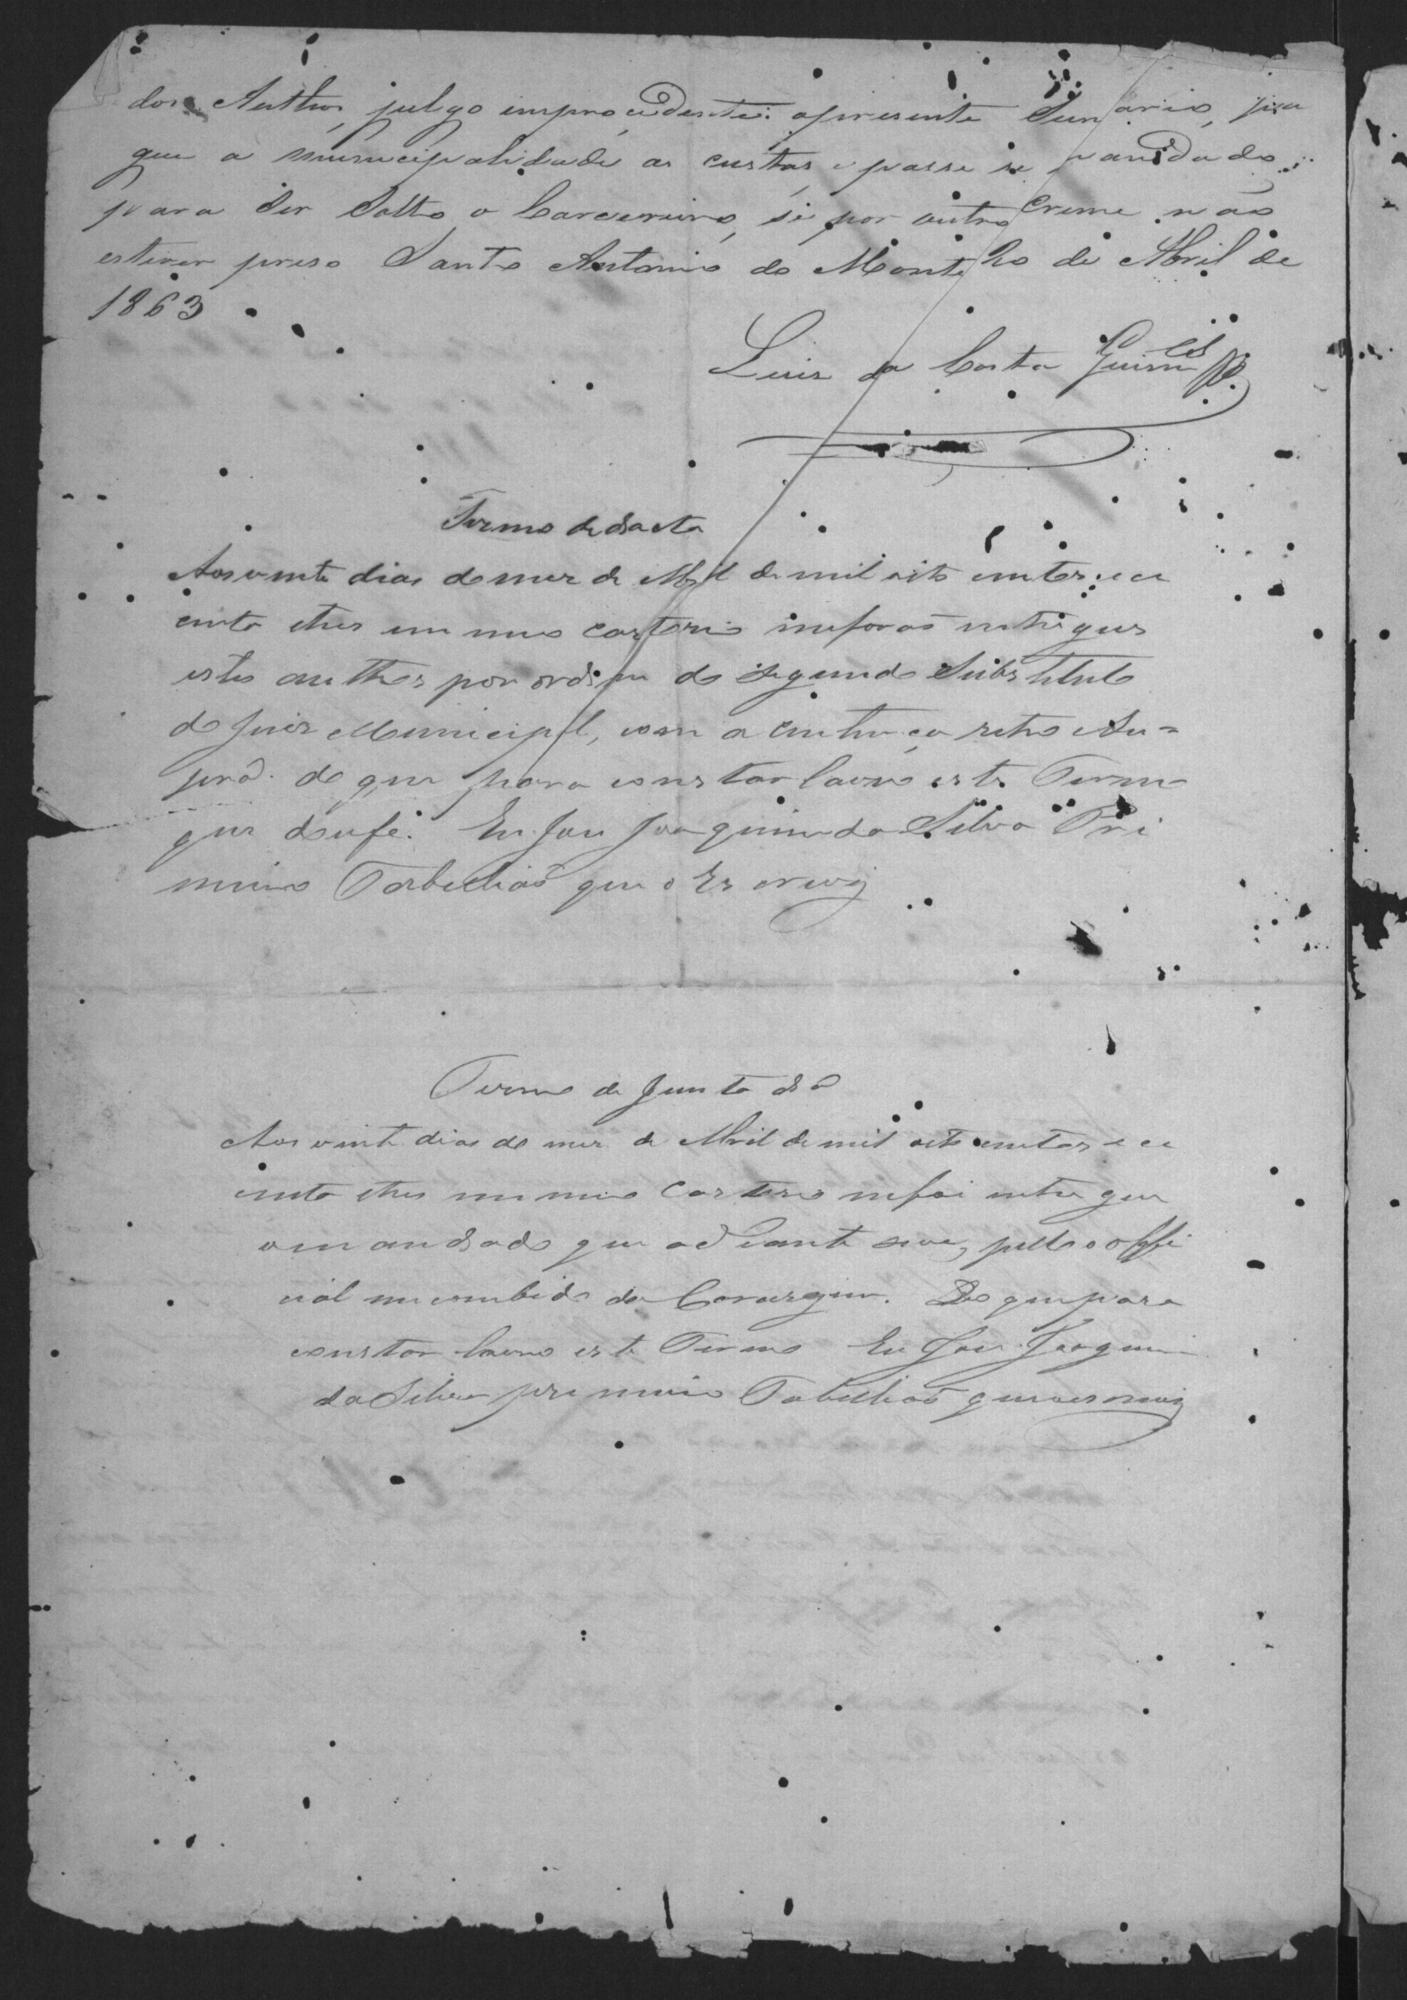 dos Authos, julgo improcedente o presente Sumario, pa
gue a municipalidade as custas, e passe se mandado
para ser solto o Carcereiro, se por outro crime não
estiver preso Santo Antonio do Monte de Abril de
1863
Luis da Costa Guim.es
Termo de data
Aos vinte dias do mes de Abril de mil oito centos e ce
centa e tres em meu cartorio me forão entregues
estes authos por ordem do segundo Substituto
do Juis Municipal, com a sentença retro
do que para constar lavro este Termo
que dou fé. Eu Jose Joaquim da Silva Pri
meiro Tabelião que o Escrevi
Termo de Juntada
Aos vinte dias do mes de Abril de mil oito centos e ce
centa e tres em meu cartorio me foi entregue
o mandado que adiante se ve, pello offi
cial incumbido da . Do que para
constar lavro este Termo Eu Jose Joaquim
da Silva primeiro Tabelião que o escrevi